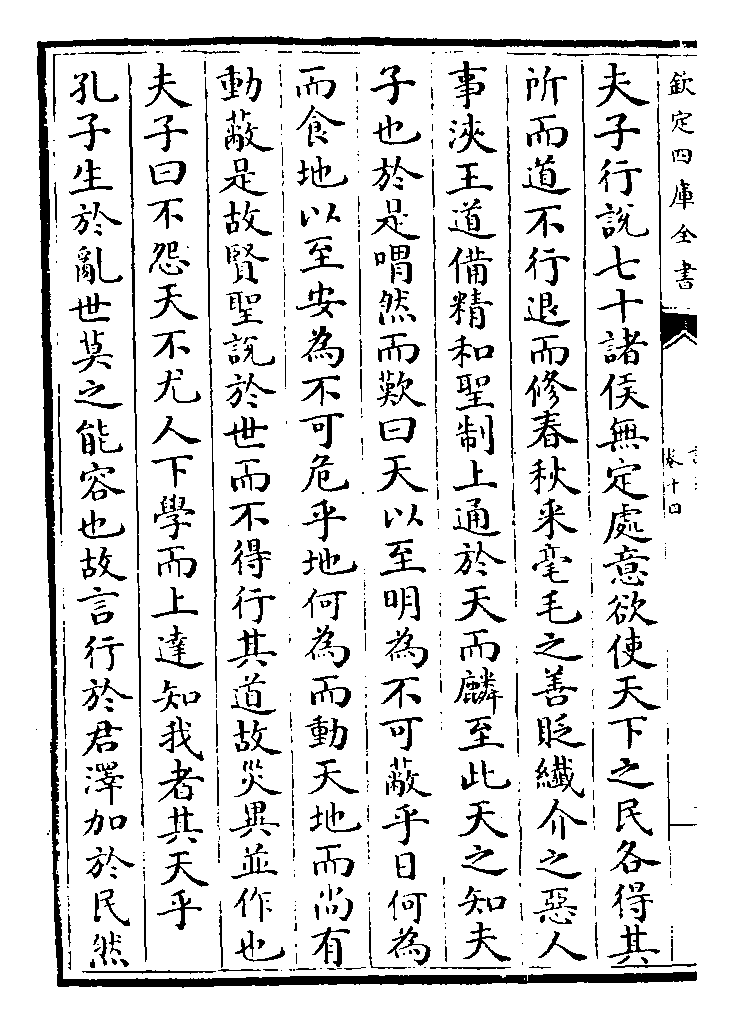 欽定四庫全書
卷十四
夫子行說七十諸侯無定處意欲使天下之民各得其
所而道不行退而修春秋采毫毛之善貶纎介之惡人
事浹王道備精和聖制上通於天而麟至此天之知夫
子也於是喟然而歎曰天以至明為不可蔽乎日何為
而食地以至安為不可危乎地何為而動天地而尚有
動蔽是故賢聖說於世而不得行其道故災異並作也
夫子曰不怨天不尤人下學而上達知我者其天乎
孔子生於亂世莫之能容也故言行於君澤加於民然